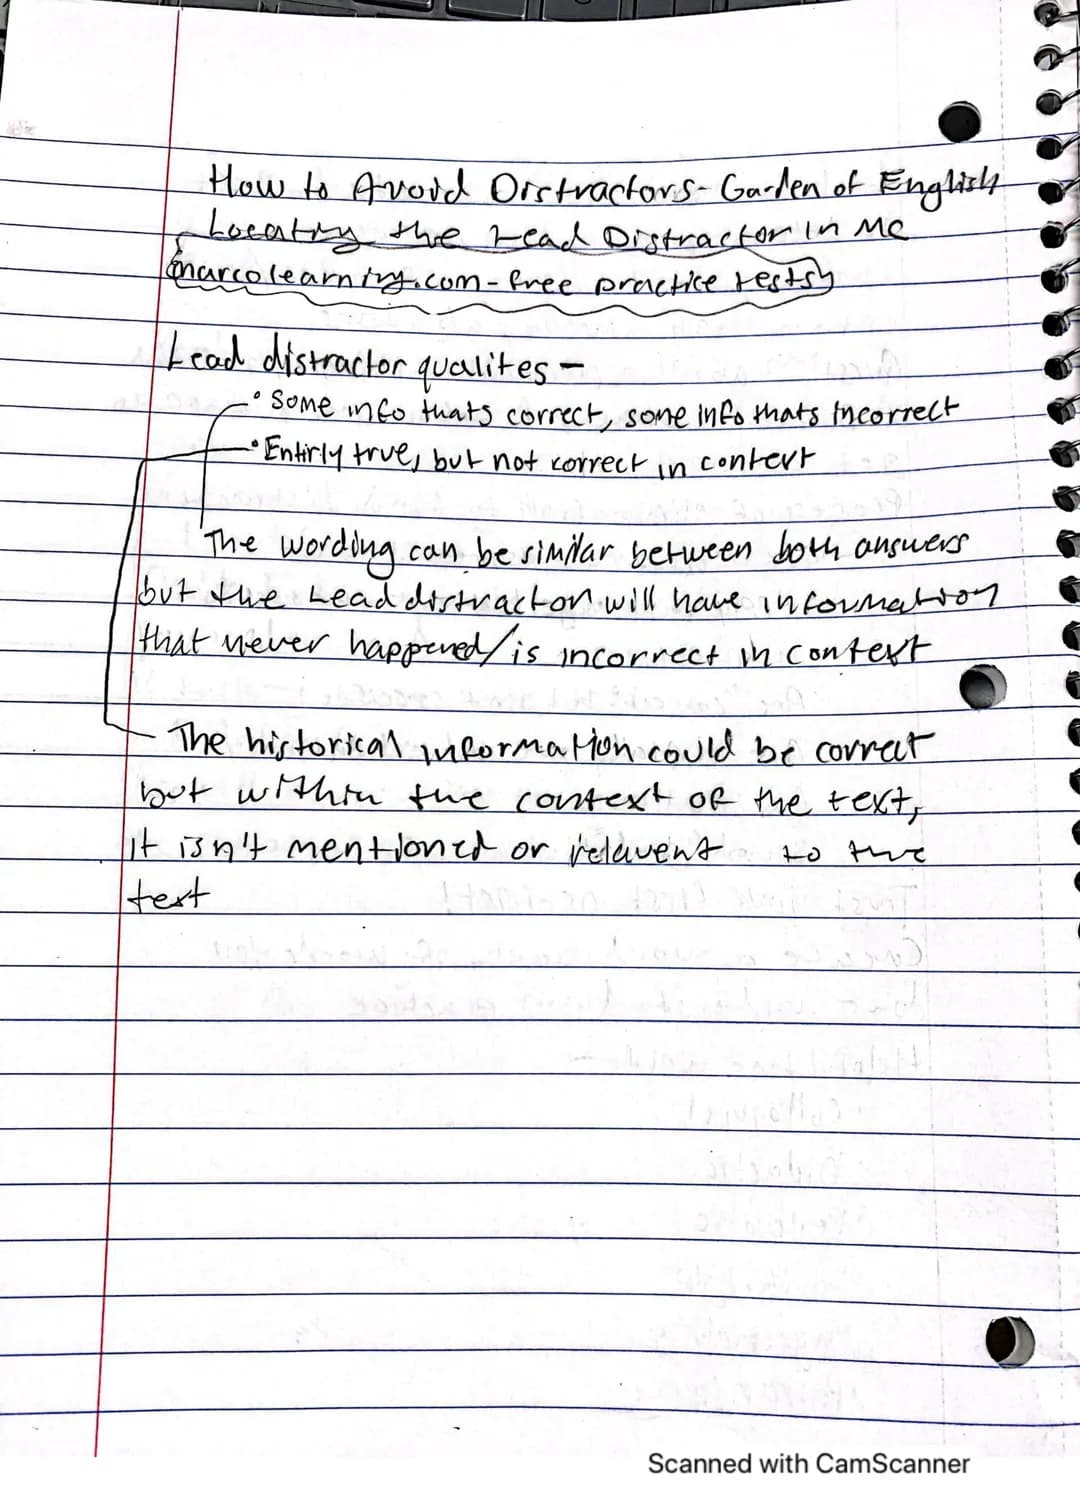 How to Avoid Distractors - Garden of English
Locating the Lead Distractor in MC
marcolearning.com - free practice tests
Lead distractor qualites -
• Some info thats correct, some info thats incorrect
• Entirly true, but not correct in context
The wording can be similar between both answers
but the Lead distractor will have information
that never happened/is incorrect in context
The historical information could be correct
but within the context of the text,
it isn't mentioned or relavent to the
text
Scanned with CamScanner